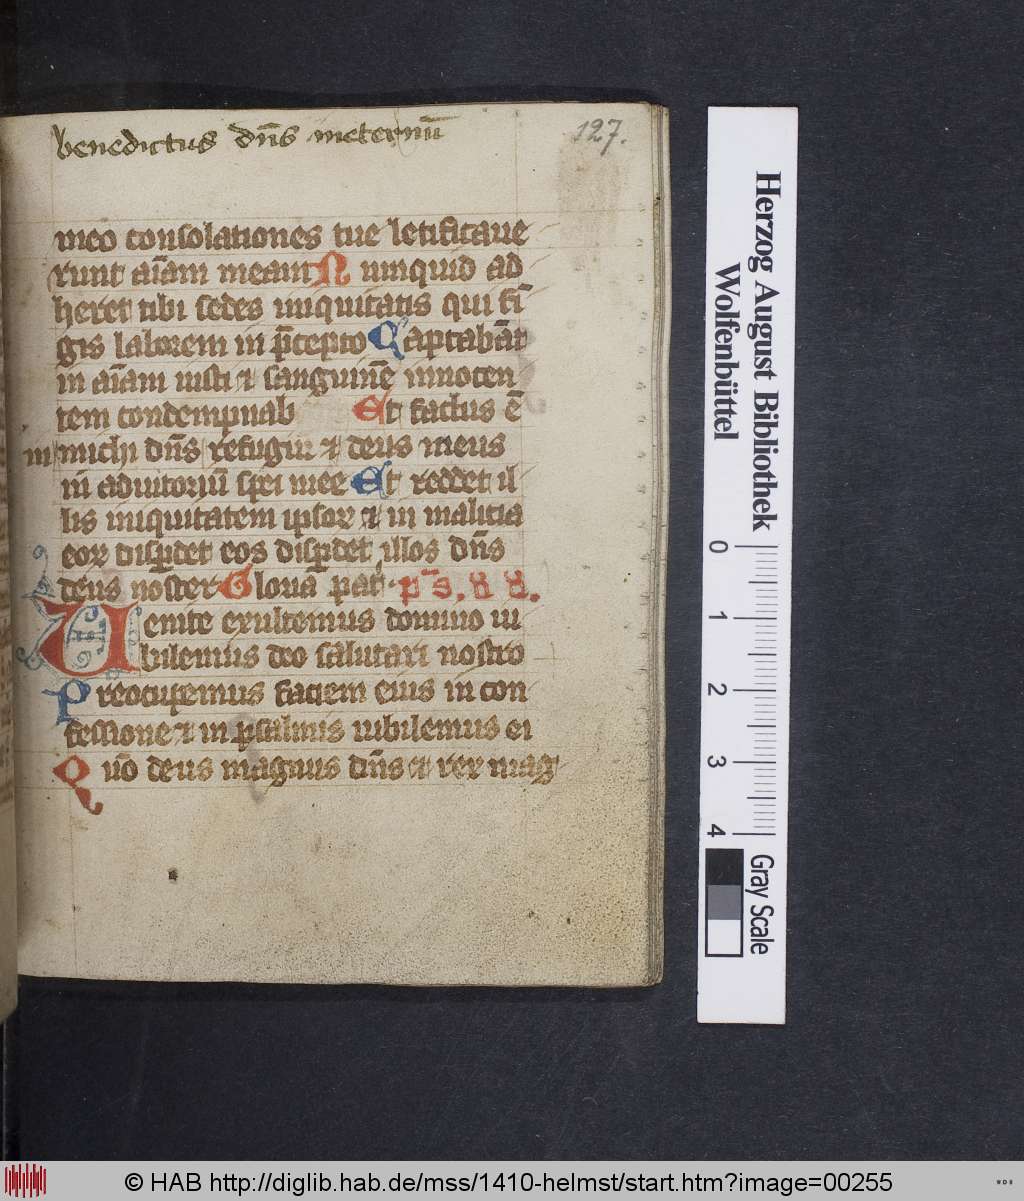 benedictus dn̄s ineternū
127.
meo consolationes tue letificaue
runt aīam meam Numquid ad
heret tibi sedes iniquitatis qui fī
gis laborem in p̄cepto Captabāt
in aīam iusti et sanguinē innocen
tem condempnab Et factus ē
michi dn̄s refugiū et deus meus
in adiutoriū spei mee Et reddet il
lis iniquitatem ipsoꝝ et in malicia
eoꝝ disꝑdet eos disꝑdet illos dn̄s
deus noster Gloria pat̄
Venite exultemus domino iu
bilemus deo salutari nostro
Preocupemus faciem eius in con
fessione et in psalmis iubilemus ei
Quō deus magnus dn̄s et rex mag
Herzog August Bibliothek
Wolfenbüttel
0 1 2 3 4
Gray Scale
© HAB http://diglib.hab.de/mss/1410-helmst/start.htm?image=00255